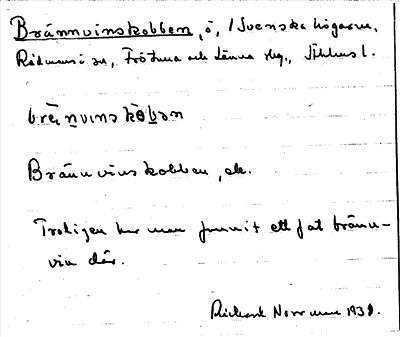 Brännvinskobben, ö, / Svenska högarna,
Rådmansö sn, Frötuna och Länna skg., Sthlms l.
brä̀n̲vinskò̲bən
Brännvinskobben, ek.
Troligen har man funnit ett fat bränn-
vin där.
Rickard Norrman 1938.